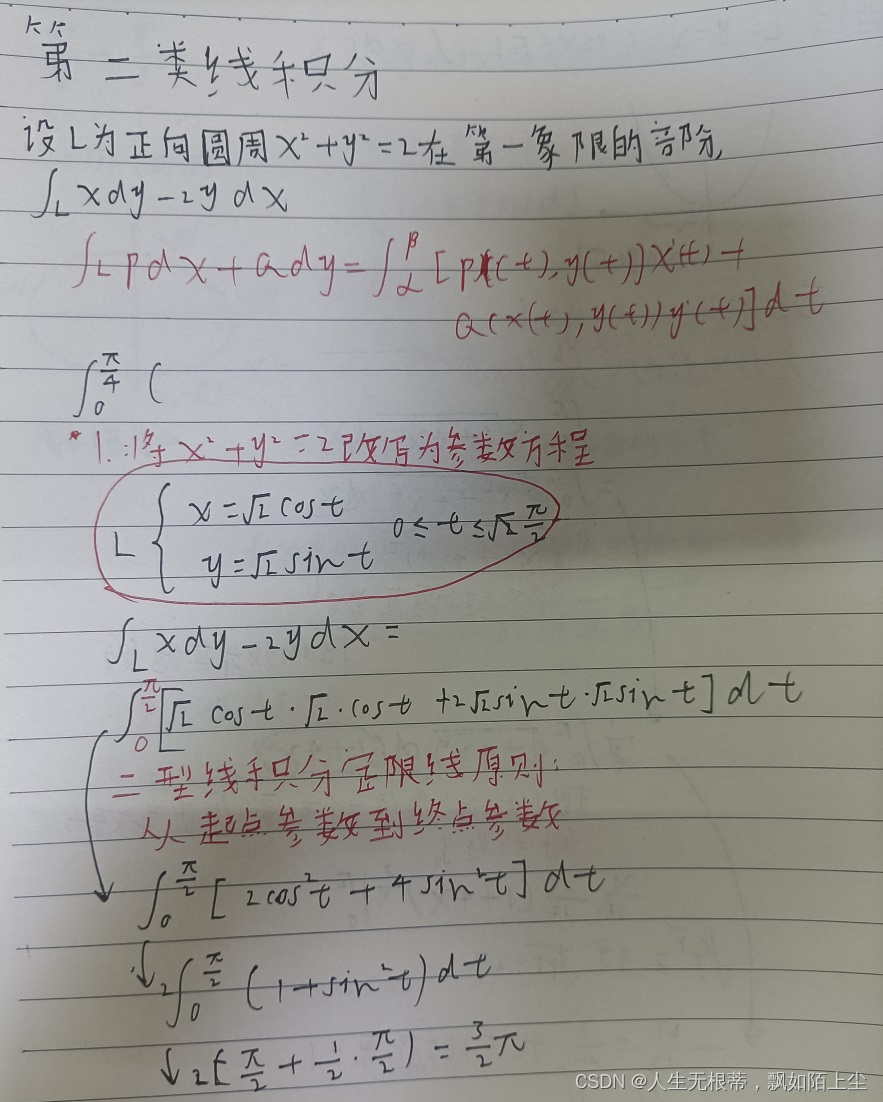 第二类线积分
设L为正向圆周x²+y²=2在第一象限的部份,
∫_L xdy-2y dx
∫_L Pdx+Qdy=∫_α^β [P(x(t),y(t))x'(t)+
Q(x(t),y(t))y'(t)]dt
∫_0^{π/4} (
*1.将x²+y²=2改写为参数方程
L { x=√2cost
y=√2sint 0≤t≤√2 π/2
∫_L xdy-2ydx=
∫_0^{π/2}[√2 cost·√2·cost +2√2sint·√2sint]dt
二型线积分定限线原则:
从起点参数到终点参数
∫_0^{π/2} [2cos²t+4sin²t]dt
↓ 2∫_0^{π/2} (1+sin²t)dt
↓ 2[π/2+1/2·π/2)=3/2π
CSDN @人生无根蒂，飘如陌上尘